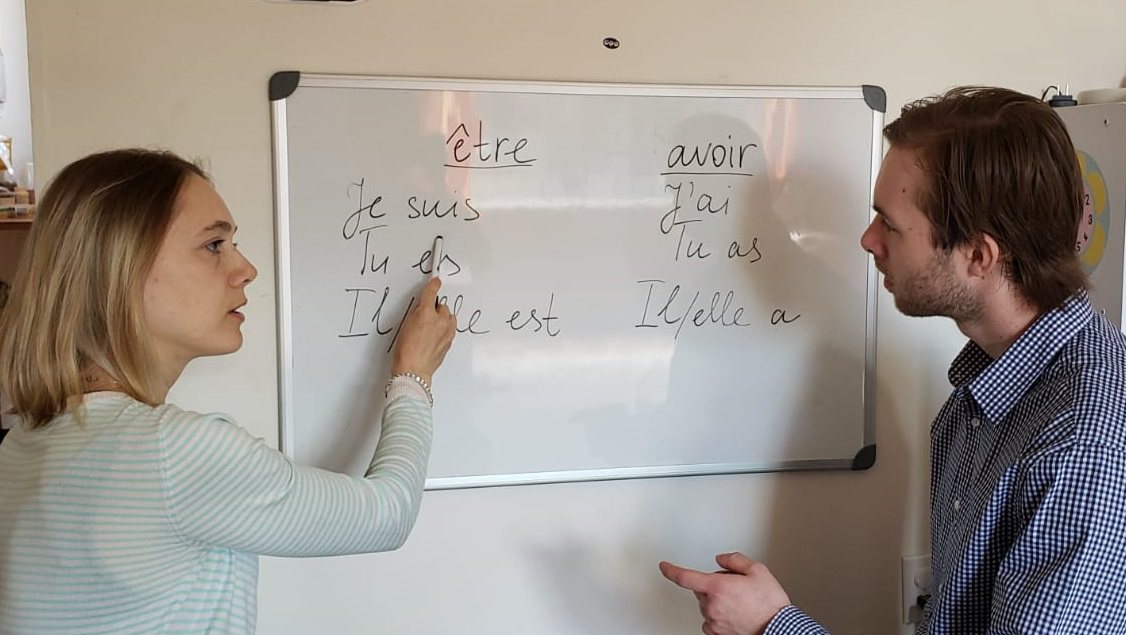 être
Je suis
Tu es
Il/elle est
avoir
J'ai
Tu as
Il/elle a
2
3
4
5